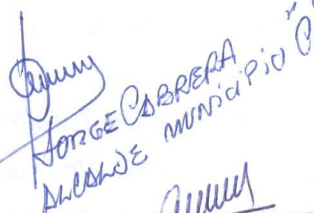 JORGE CABRERA
ALCALDE MUNICIPIO "C"